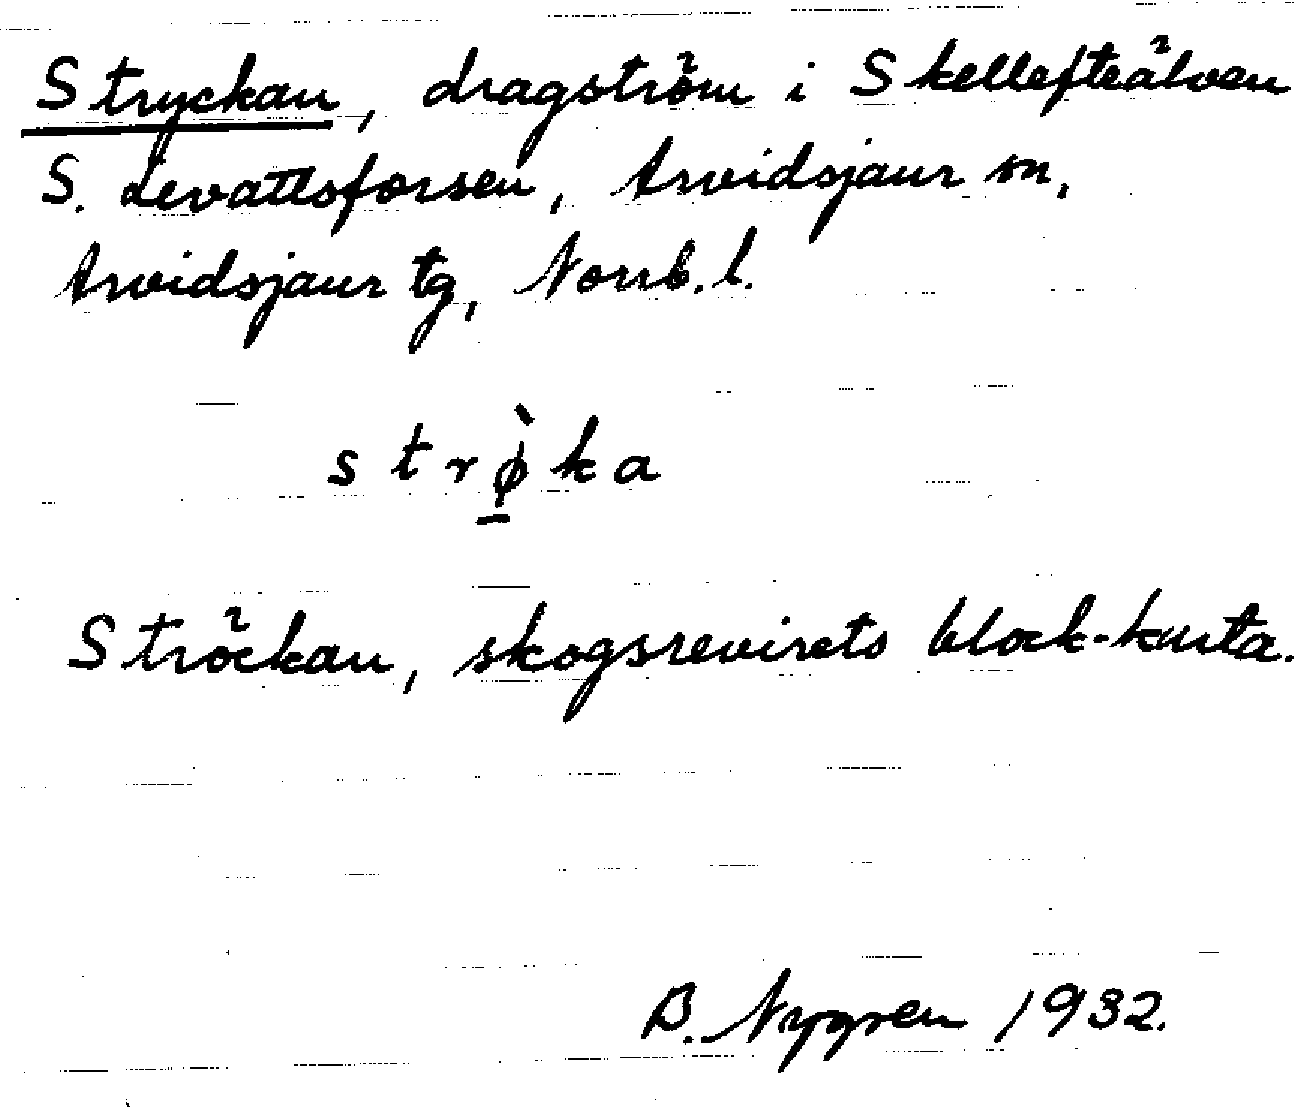 Stryckan, dragström i Skellefteälven
S. Levattsforsen, Arvidsjaur sn,
Arvidsjaur tg, Norrb. l.
strø̱̀ka
Ströckan, skogsrevirets block-karta.
B. Nygren 1932.